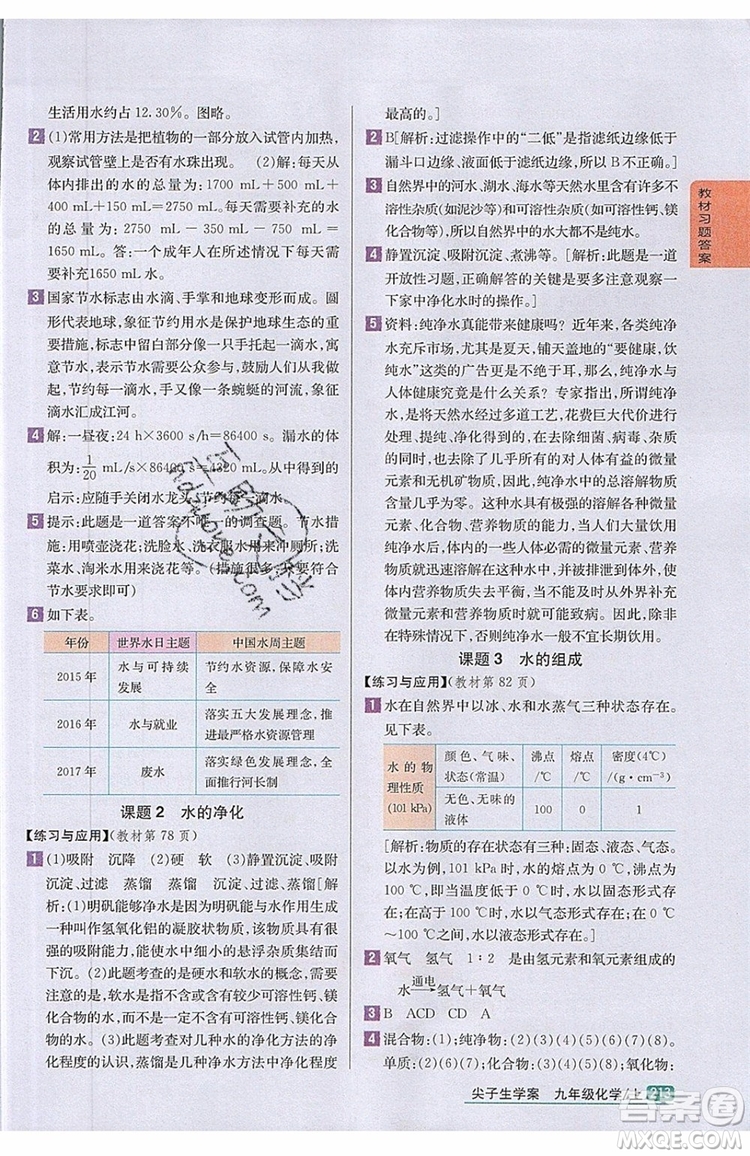 生活用水约占 12.30%。图略。
2 (1)常用方法是把植物的一部分放入试管内加热,
观察试管壁上是否有水珠出现。 (2)解:每天从
体内排出的水的总量为:1700 mL+500 mL+
150 mL+400 mL=2750 mL。每天需要补充的水
的总量为:2750 mL-1000 mL-100 mL=
1650 mL。答:一个成年人在所述情况下每天需
要补充1650 mL 水。
3 国家节水标志由水滴、手掌和地球变形而成。圆
形代表地球,象征节约用水是保护地球生态的重
要措施,标志中留白部分像一只手托起一滴水,寓
意节水需要公众参与,鼓励人们从我做起,人人动
手节约每一滴水,手又像一条蜿蜒的河流,象征
滴水汇成江河。
4 解:一昼夜:24 h×3600 s/h=86400 s。漏水的体
积为:1/20 mL/s×86400 s=4320 mL。
启示:应随手关闭水龙头,节约每一滴水。
5 提示:此题是一道答案不唯一的调查题。节水措
施:用喷壶浇花;洗脸水、洗衣服水用来冲厕所;洗
菜水、淘米水用来浇花等。(措施很多,符合节约
节水要求即可)
6 如下表。
年份 世界水日主题 中国水周主题
2015年 水与可持续发展 节约水资源,保障水安全
2016年 水与就业 落实五大发展理念,推进最严格水资源管理
2017年 废水 落实绿色发展理念,全面推行河长制
课题 2 水的净化
【练习与应用】(教材第 78 页)
1 (1)吸附 沉降 (2)硬 软 (3)静置沉淀、吸附
沉淀、过滤 蒸馏 蒸馏、吸附沉淀、过滤[解
析:(1)明矾能够净水是明矾与水作用后生成
一种叫作氢氧化铝的凝胶状物质,该物质具有
吸附性,能使水中细小的悬浮杂质集结而
下沉。(2)此题考查的是硬水和软水的概念,需要
注意的是,软水是指不含或含较少可溶性钙、镁化
合物的水,并不一定不含有其他可溶性非钙、
镁化合物的杂质。(3)此题考查对水的净化方法的净
化程度的认识,蒸馏是几种净水方法中净化程度
最高的。]
2 B[解析:过滤操作中的“二低”是指滤纸边缘低于
漏斗口边缘、液面低于滤纸边缘,所以 B 不正确。]
3 自然界中的河水、湖水、海水等天然水中含有许多不
溶性杂质(如泥沙等)和可溶性杂质(如可溶性钙、镁
化合物),所以自然界中的水大都不是纯水。
4 静置沉淀、吸附沉淀、煮沸等。[解析:这是一道
开放性习题,正确解答的关键是要多注意一
下家中净化水时的操作。]
5 资料:纯净水真能带来健康吗? 近年来,各类纯净
水充斥市场,尤其是夏天,铺天盖地的“要健康,喝
纯净水”这类的广告更是不绝于耳,那么,纯净水
与人体健康究竟是什么关系? 专家指出,所谓纯净
水,就是将天然水经过多道工艺,花费巨大代价进行
处理、提纯、净化得到的。在去除了水中的悬浮物、
细菌等有害物质的同时,也除去了对人体有益的微量
元素和无机矿物质,水分子之外的其他物质含量
几乎为零。这种水会大量溶解人体内的各种微量
元素、化合物、营养物质的能力极强,人体大量饮用
纯净水后,体内的一些人体必需的微量元素、营养
物质就会迅速溶解于水中,并被排泄到体外,使人体
内的营养物质失去平衡,出现健康赤字,不利于健康。
除在特殊情况下,纯净水不宜长期饮用。
课题 3 水的组成
【练习与应用】(教材第 82 页)
1 水在自然界中以冰、水和水蒸气三种状态存在。
见下表。
水的物理性质(101 kPa) 颜色、气味、状态(常温) 沸点/℃ 熔点/℃ 密度(4℃)/(g·cm⁻³)
无色、无味的液体 100 0 1
[解析:物质的存在状态有三种:固态、液态、气态。
以水为例,在101 kPa 下,水的熔点为0 ℃,沸点为
100 ℃,小于0 ℃时,水以固态形式存在;大于
100 ℃时,水以气态形式存在;在0 ℃~
100 ℃之间时,水以液态形式存在。]
2 氧气 氢气 1∶2 是由氢元素和氧元素组成的
水 —通电→ 氢气+氧气
3 B ACD CD A
4 混合物:(1);纯净物:(2)(3)(4)(5)(6)(7)(8)。
单质:(2)(4);化合物:(3)(5)(6)(7)(8)。氧化物:
教材习题答案
尖子生学案 九年级化学/上 213
答案圈
MXQE.COM